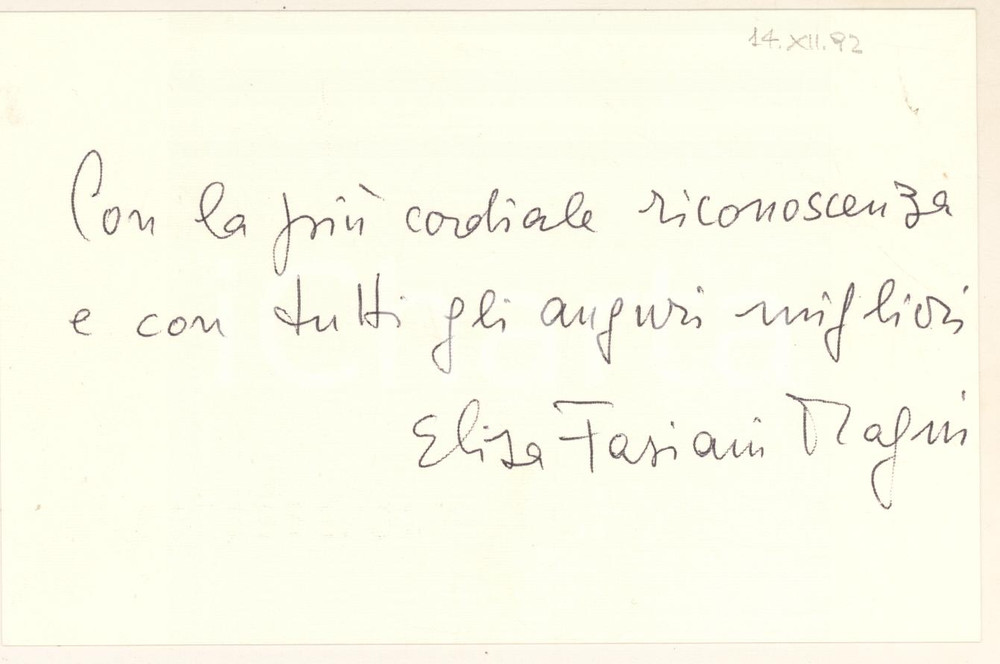 14.XII.92
Con la più cordiale riconoscenza
e con tutti gli auguri migliori
Elisa Fasiani Magni